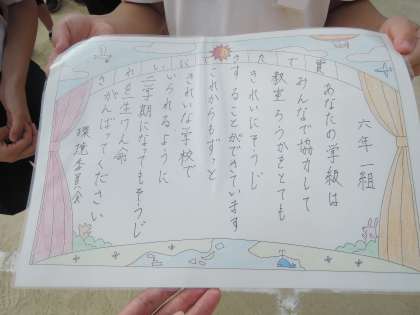 六年一組
賞
あなたの学級は
みんなで協力して
教室ろうかをとても
きれいにそうじ
することができています
これからもずっと
きれいな学校で
いられるように
二学期になてもそうじ
を生けん命
がんばってください
環境委員会